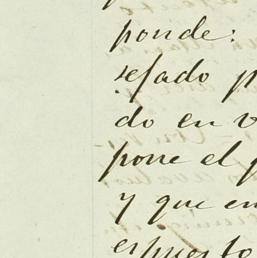 ponde:
sesado p
do en v
pone el q
y que en
espuesto